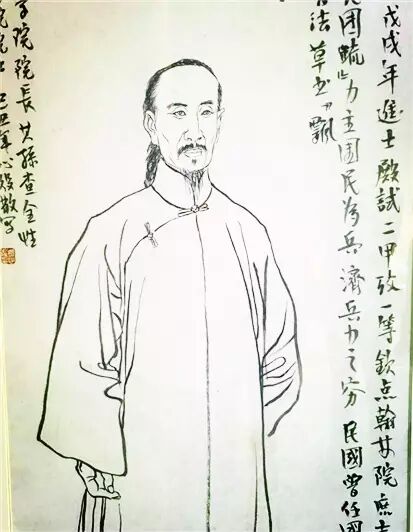 戊戌年進士殿試二甲攷一等欽点翰林院庶吉
团疏』力主国民為兵濟兵力之穷民國曾任國
法草书〃飘
学院院長其孫查全性
院院士己丑年心毅敬写